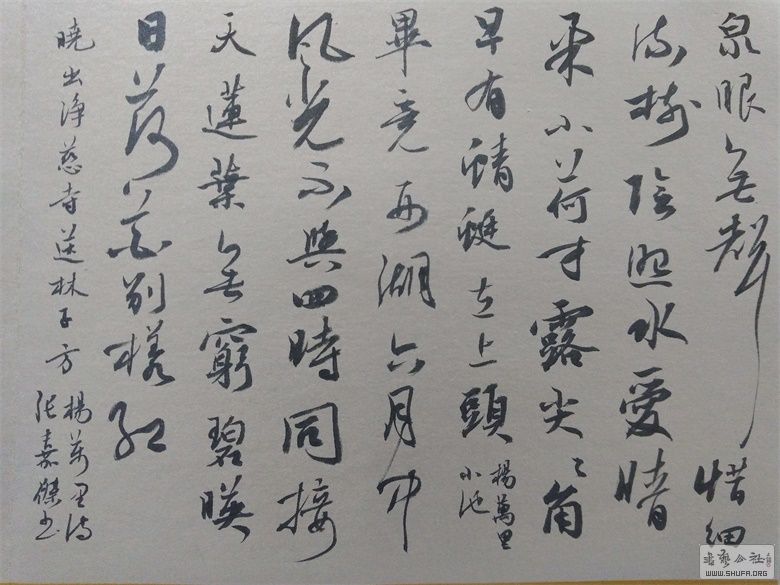 泉眼無聲惜細
流樹陰照水愛晴
柔小荷才露尖々角
早有蜻蜓立上頭
楊萬里
小池
畢竟西湖六月中
風光不與四時同接
天蓮葉無窮碧映
日荷花別樣紅
曉出淨慈寺送林子方
楊萬里詩
張嘉傑書
書法公社
WWW.SHUFA.ORG